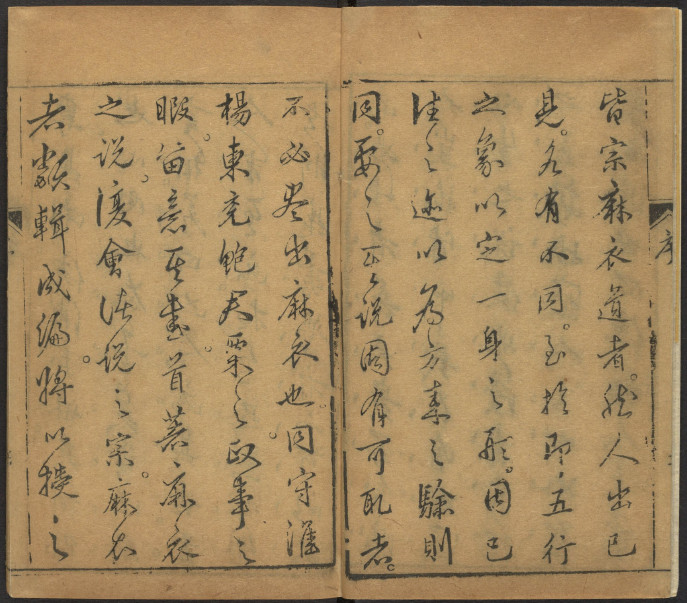 皆宗麻衣道者。然人出已
見。各有不同。至於即五行
之象以定一身之形。因已
往之迹以為方來之驗則
同。要之其說固有可取者。
不必盡出麻衣也。同守淮
楊東兗鮑君栗之政事之
暇。留意其書首著麻衣
之說。復會諸說之宗麻衣
者類輯成編。將以授之
序